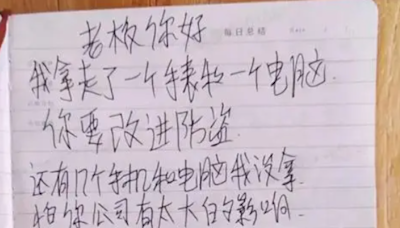 每日总结
老板你好
我拿走了一个手表和一个电脑.
你要改进防盗.
还有几个手机和电脑我没拿
怕你公司有太大的影响